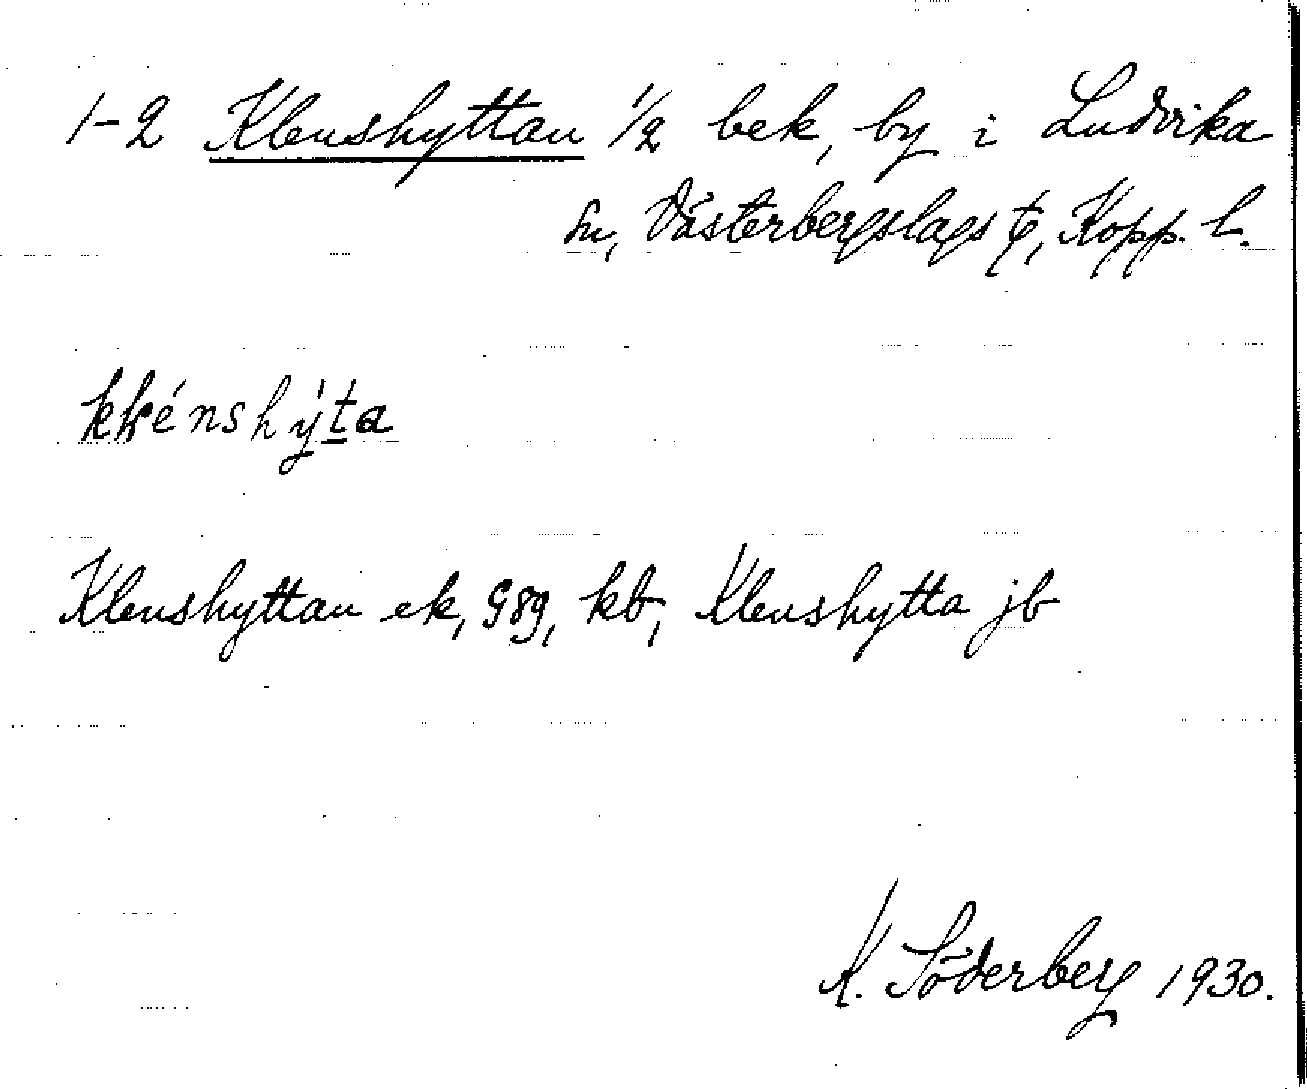 1-2 Klenshyttan 1/2 bek, by i Ludvika
sn, Västerbergslags tg, Kopp. l.
Klenshyttan ek, G89, kb, Klenshytta jb
K. Söderberg 1930.